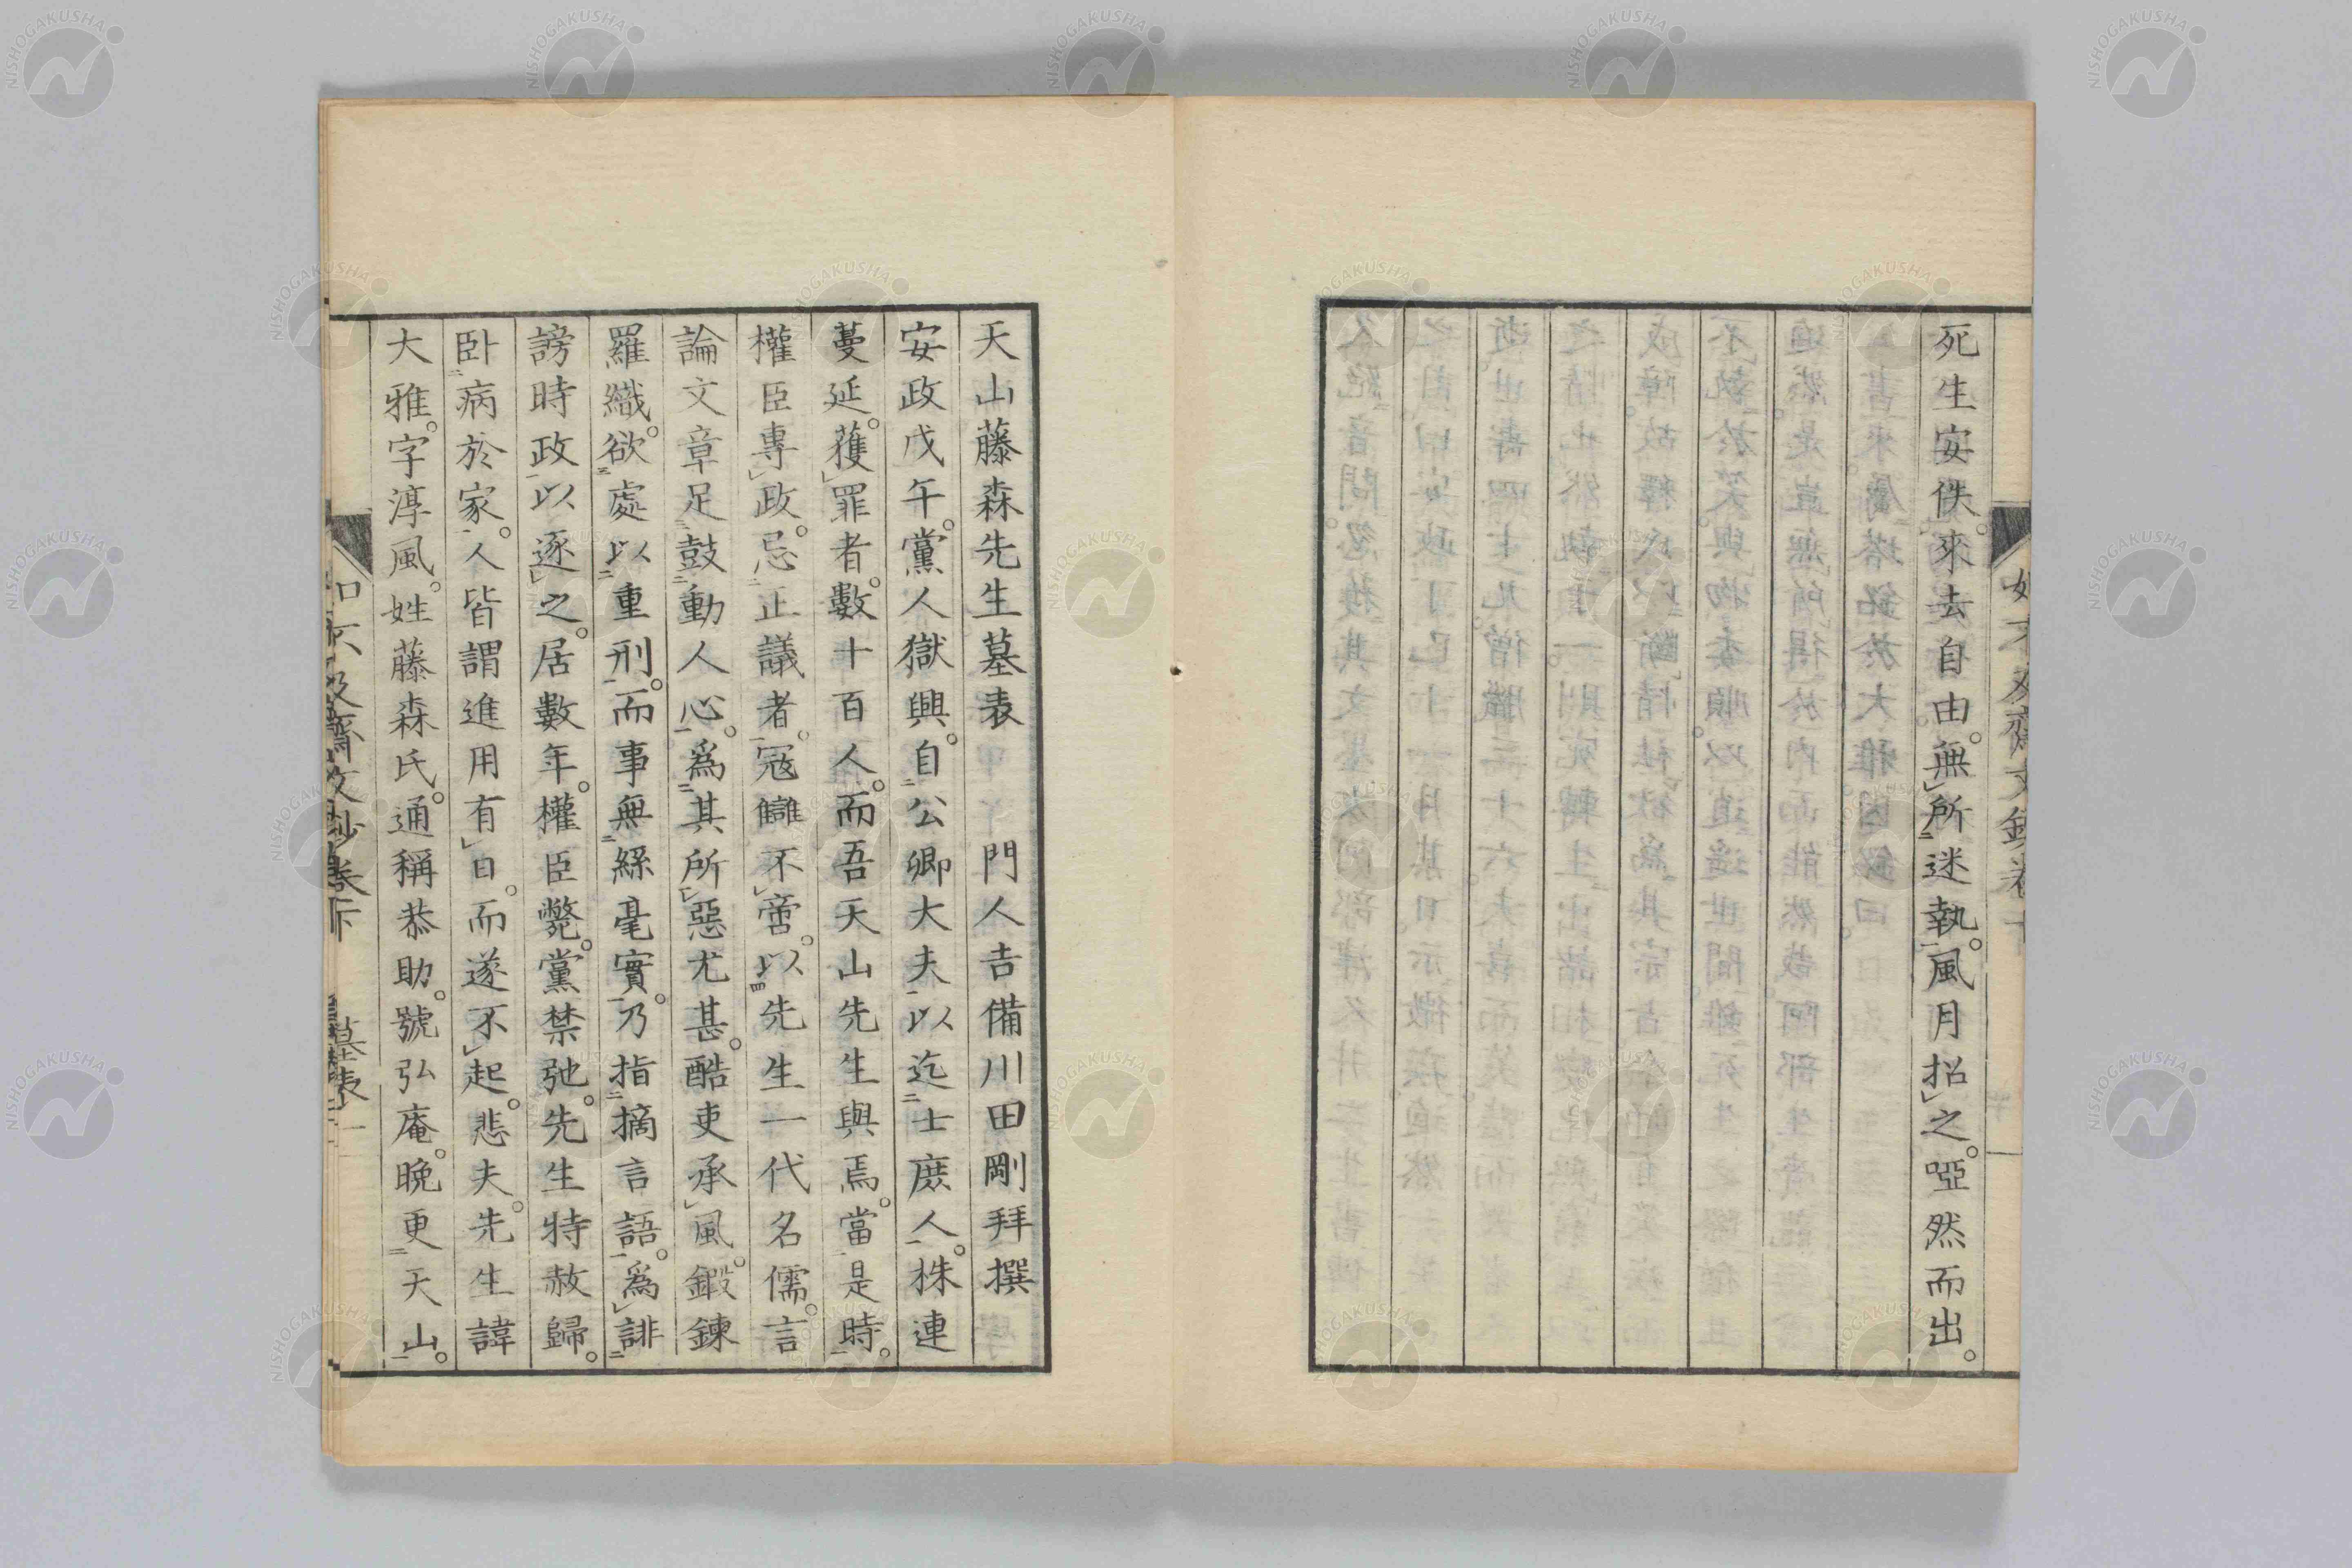 死生安佚。來去自由。無所迷執。風月招之。啞然而出。
天山藤森先生墓表　門人吉備川田剛拜撰
安政戊午。黨人獄興。自公卿大夫以迄士庶人。株連
蔓延。獲罪者。數十百人。而吾天山先生與焉。當是時。
權臣專政。忌正議者。寇讎不啻。以先生一代名儒。言
論文章足鼓動人心。爲其所惡尤甚。酷吏承風。鍛鍊
羅織。欲處以重刑。而事無絲毫實。乃指摘言語。爲誹
謗時政以逐之。居數年。權臣斃。黨禁弛。先生特赦歸。
臥病於家。人皆謂進用有日。而遂不起。悲夫。先生諱
大雅。字淳風。姓藤森氏。通稱恭助。號弘庵。晩更天山。
如不及齋文鈔卷下　墓表